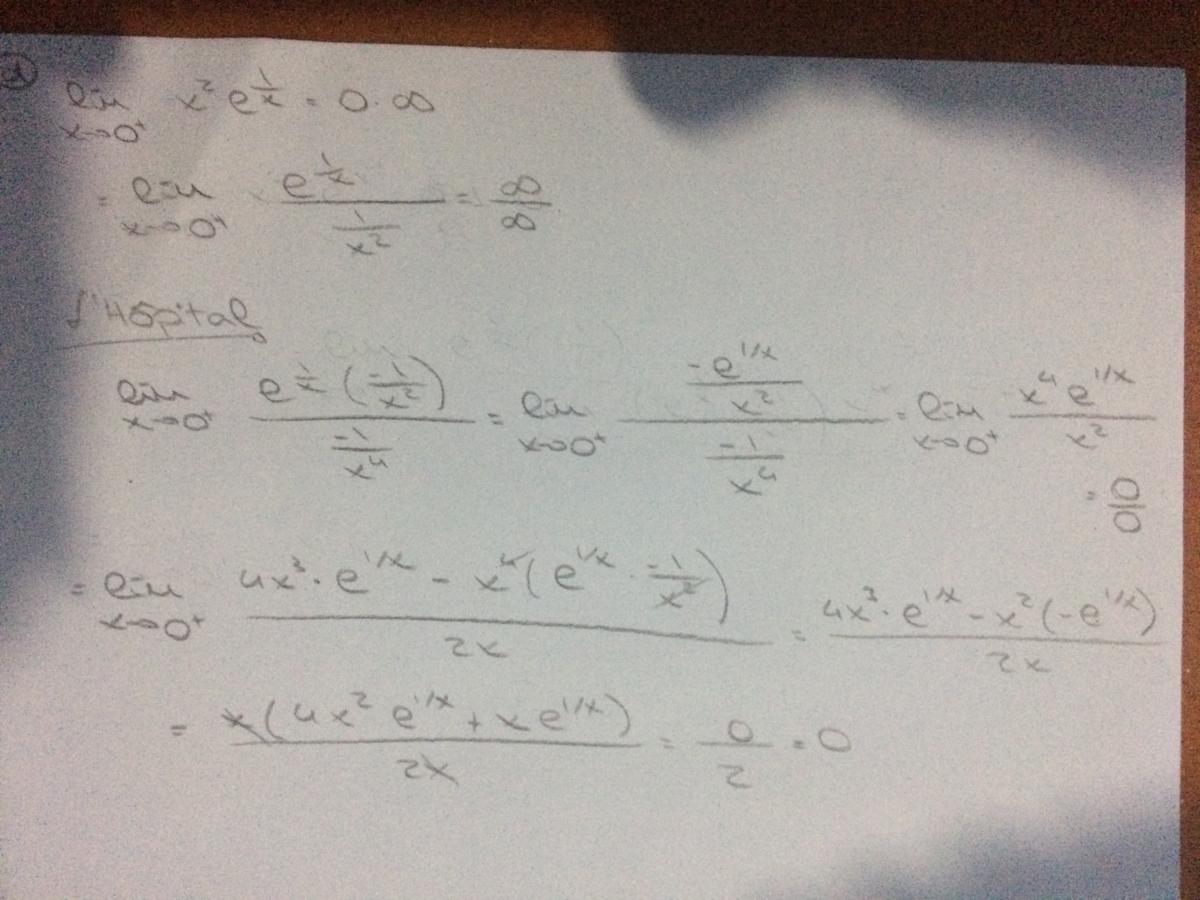 ① lim x→0⁺ x² e^(1/x) = 0·∞
= lim x→0⁺ e^(1/x) / (1/x²) = ∞/∞
L'Hôpital
lim x→0⁺ e^(1/x) (-1/x²) / (-1/x⁴) = lim x→0⁺ (-e^(1/x)/x²) / (-1/x⁴) = lim x→0⁺ x⁴ e^(1/x) / x²
= 0/0
= lim x→0⁺ (4x³·e^(1/x) - x⁴(e^(1/x)·-1/x²)) / 2x = (4x³·e^(1/x) - x²(-e^(1/x))) / 2x
= x(4x² e^(1/x) + x e^(1/x)) / 2x = 0/2 = 0